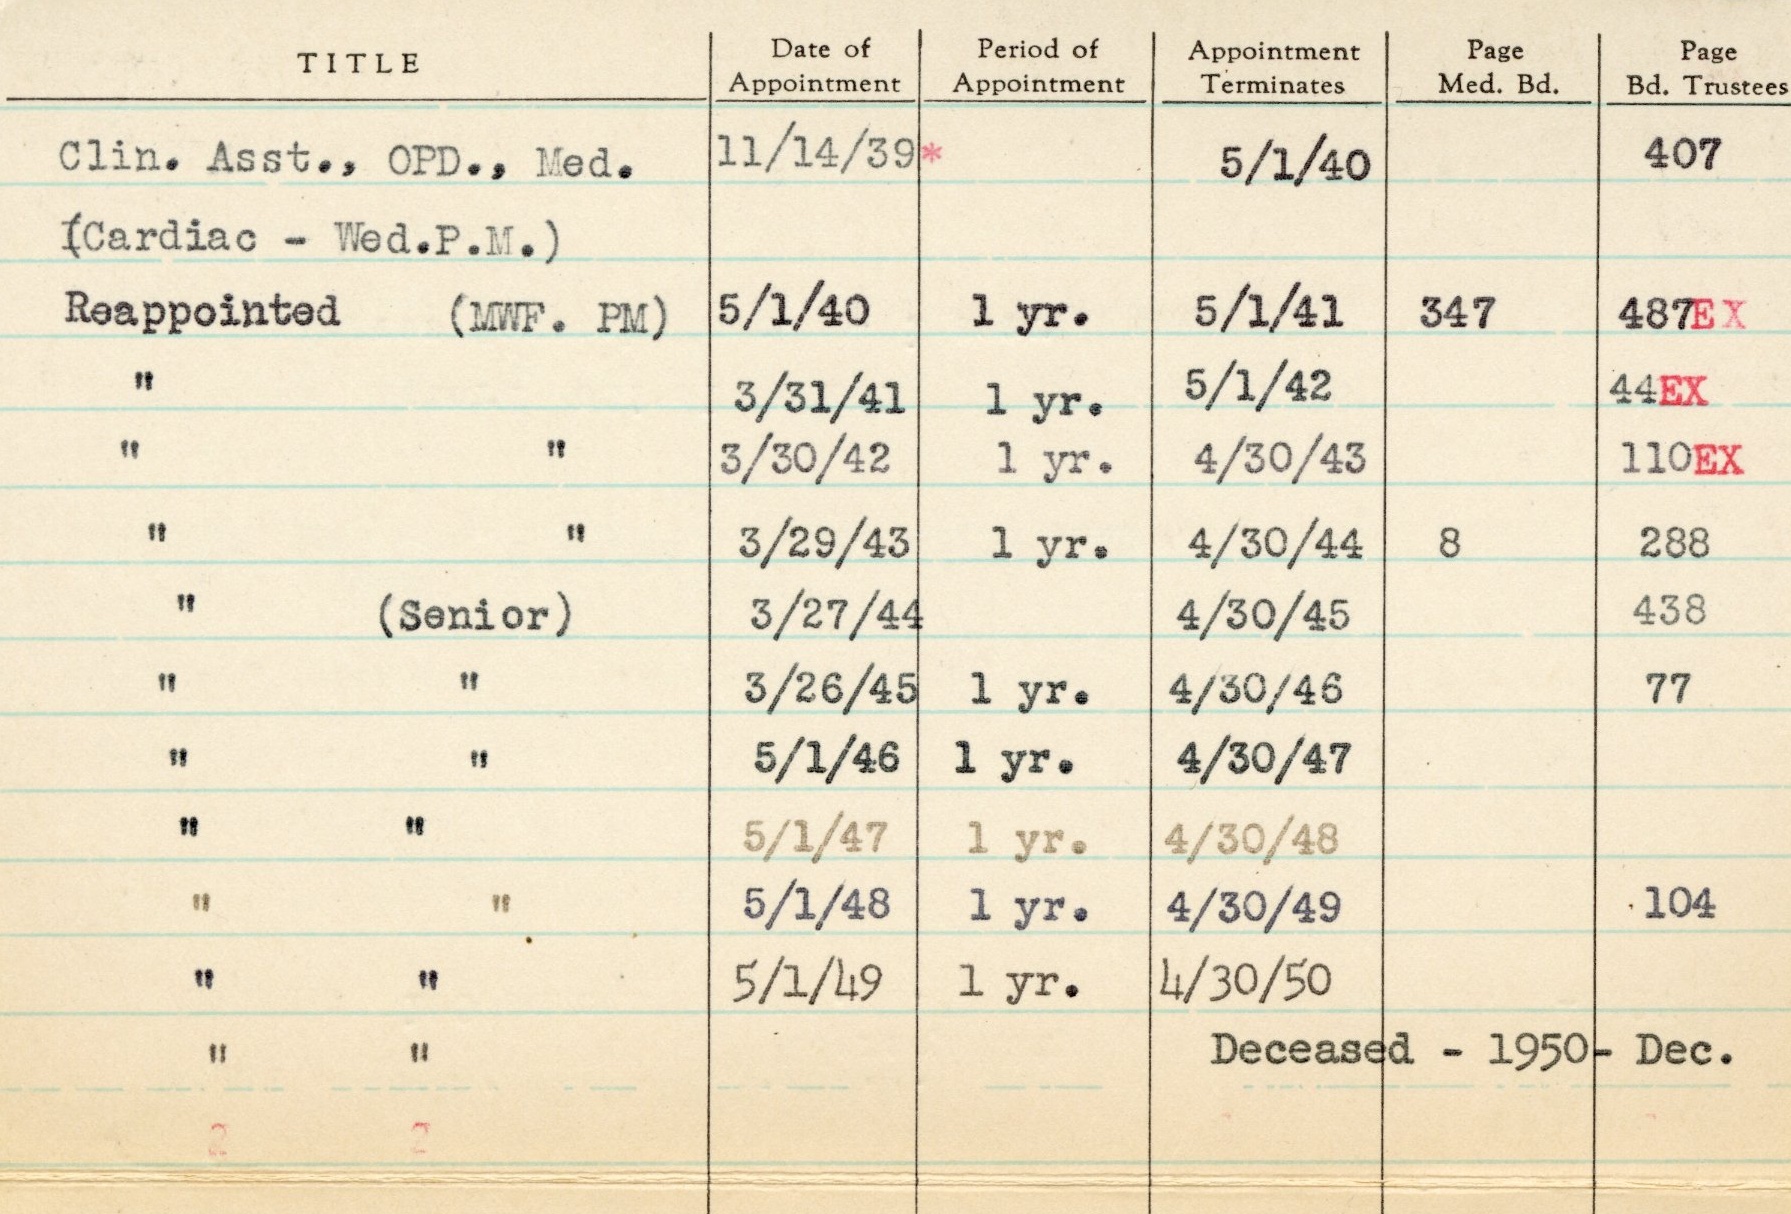 TITLE Date of Appointment Period of Appointment Appointment Terminates Page Med. Bd. Page Bd. Trustees
Clin. Asst., OPD., Med. 11/14/39* 5/1/40 407
(Cardiac - Wed.P.M.)
Reappointed (MWF. PM) 5/1/40 1 yr. 5/1/41 347 487EX
" 3/31/41 1 yr. 5/1/42 44EX
" " 3/30/42 1 yr. 4/30/43 110EX
" " 3/29/43 1 yr. 4/30/44 8 288
" (Senior) 3/27/44 4/30/45 438
" " 3/26/45 1 yr. 4/30/46 77
" " 5/1/46 1 yr. 4/30/47
" " 5/1/47 1 yr. 4/30/48
" " 5/1/48 1 yr. 4/30/49 104
" " 5/1/49 1 yr. 4/30/50
" " Deceased - 1950- Dec.
2 2